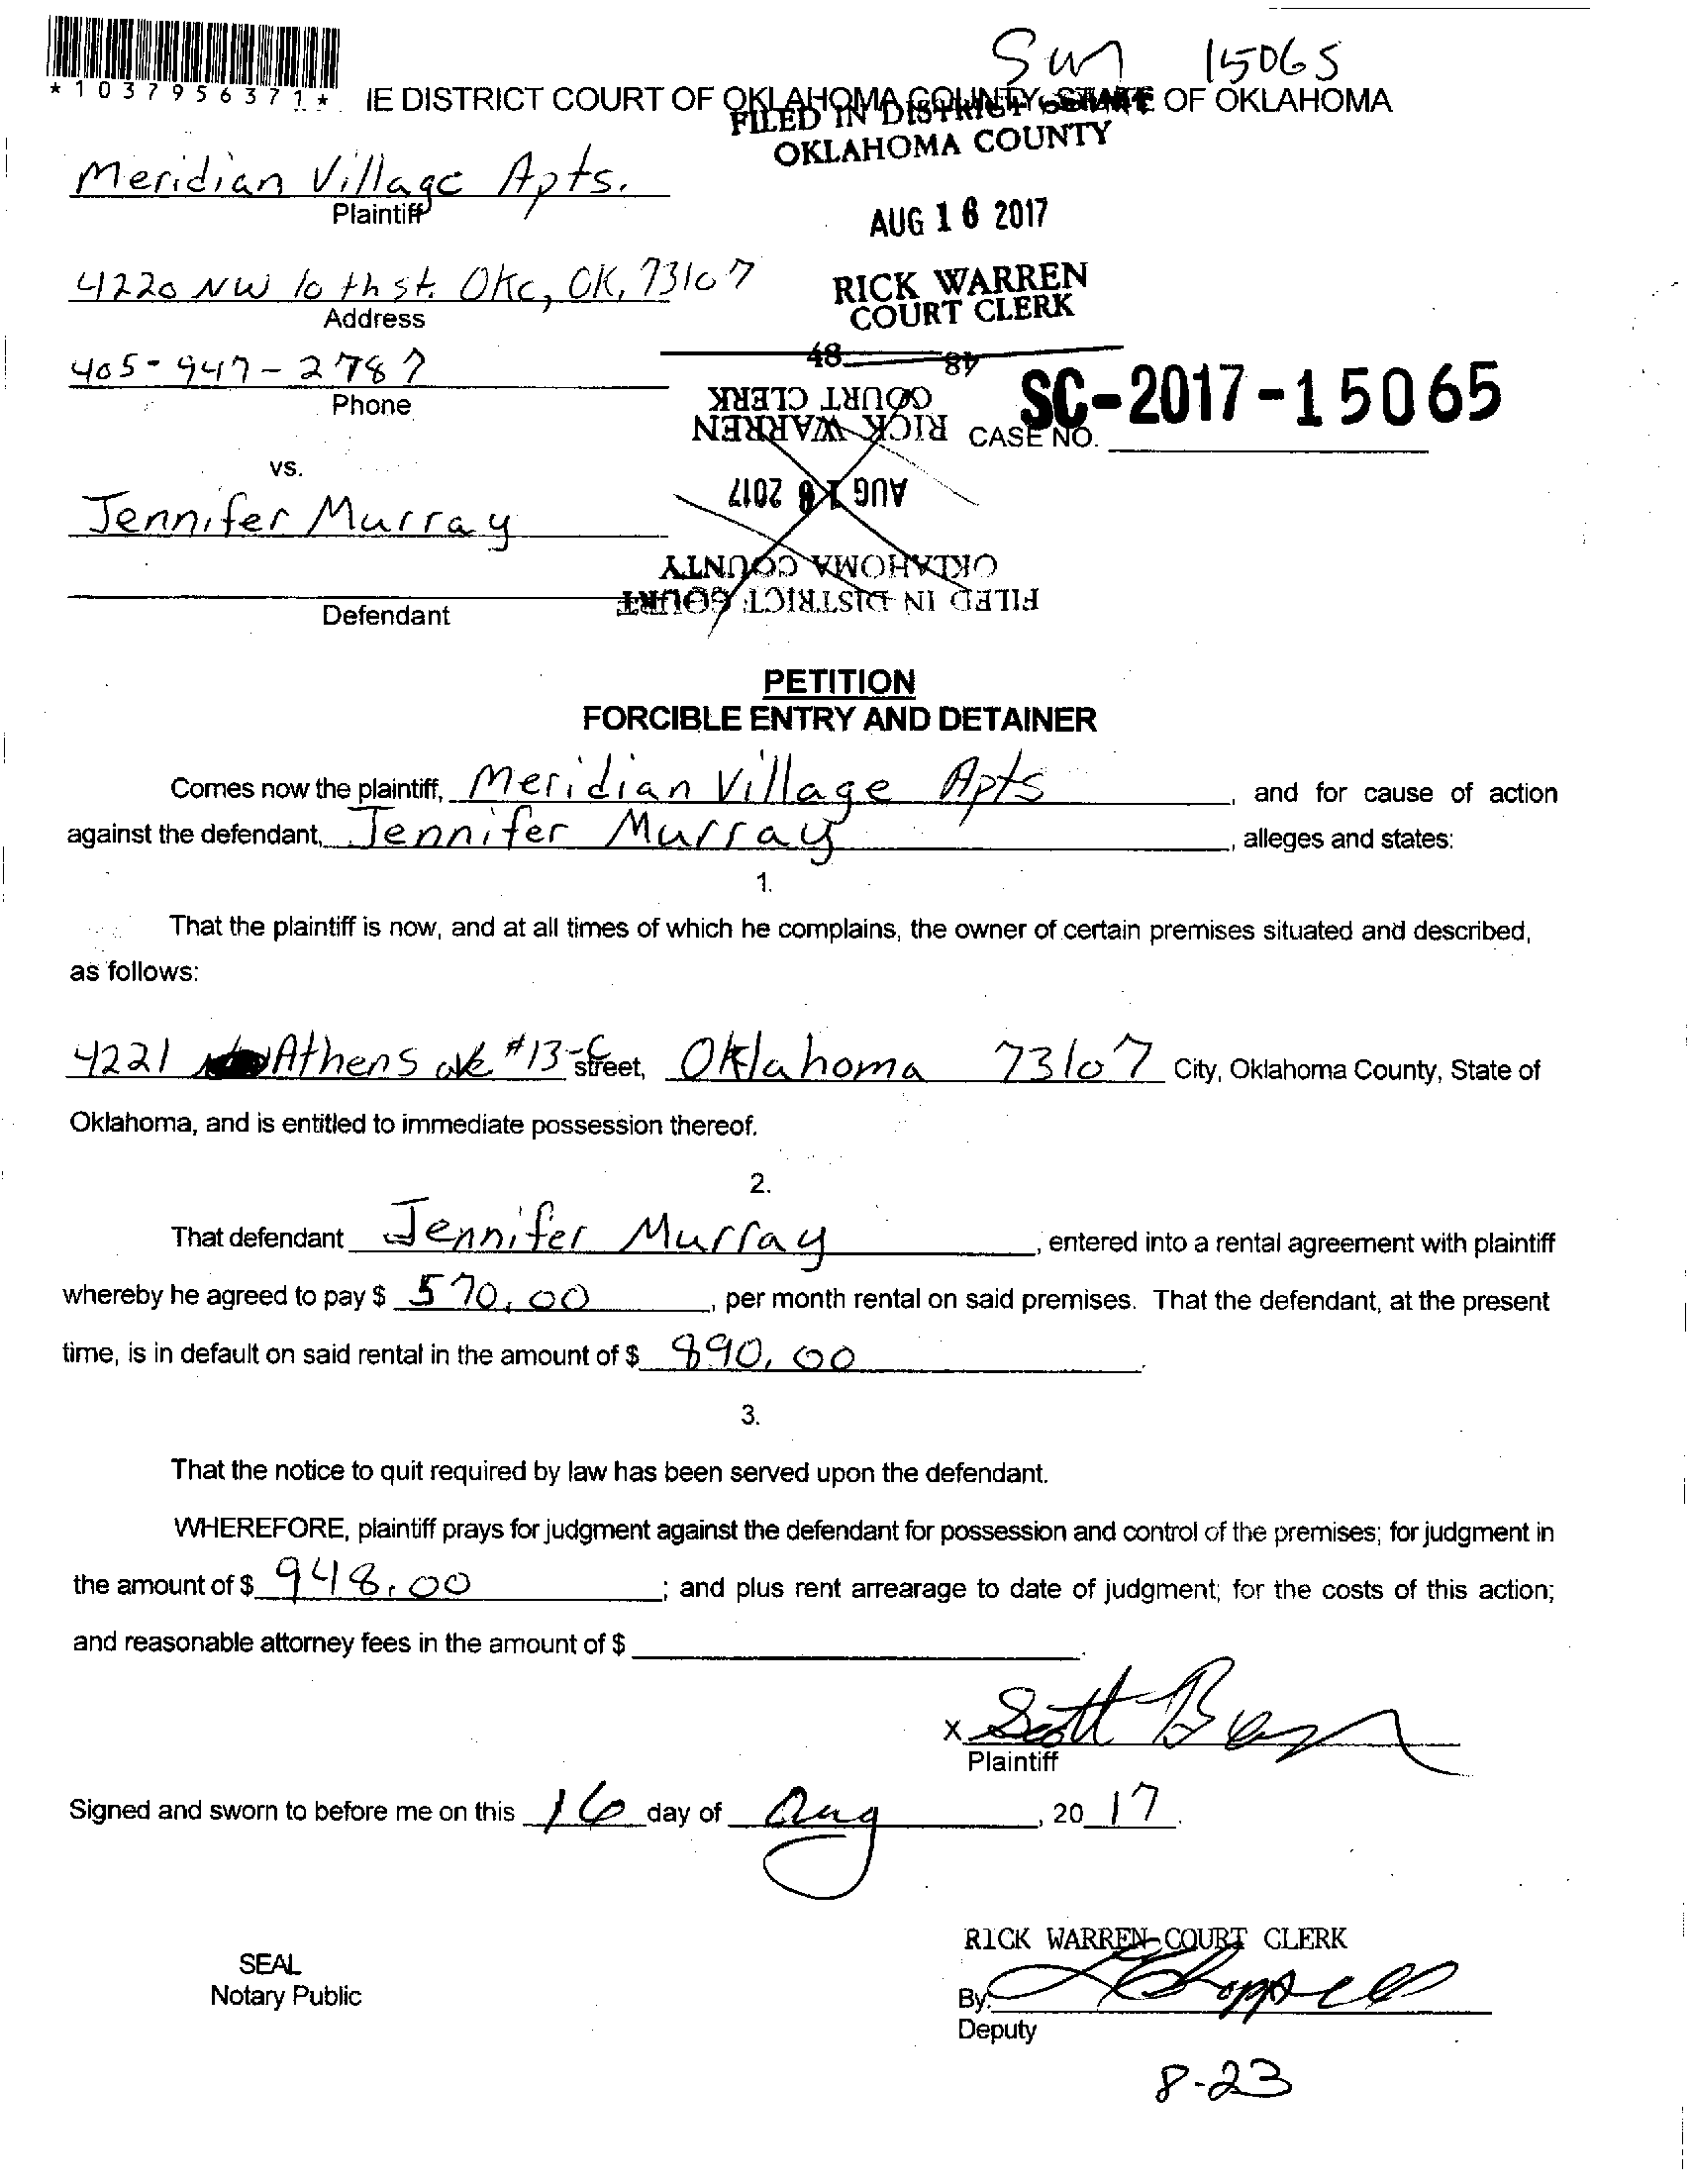 Sum 15065
*1037956371*
IE DISTRICT COURT OF OKLAHOMA COUNTY, STATE OF OKLAHOMA
FILED IN DISTRICT COURT
OKLAHOMA COUNTY
Meridian Village Apts.
Plaintiff
AUG 16 2017
4220 NW 10th st. Okc, OK, 73107
Address
RICK WARREN
COURT CLERK
405-947-2787
Phone
48
48
COURT CLERK
RICK WARREN
SC-2017-15065
CASE NO.
vs.
AUG 16 2017
Jennifer Murray
OKLAHOMA COUNTY
FILED IN DISTRICT COURT
Defendant
PETITION
FORCIBLE ENTRY AND DETAINER
Comes now the plaintiff, Meridian Village Apts, and for cause of action
against the defendant, Jennifer Murray, alleges and states:
1.
That the plaintiff is now, and at all times of which he complains, the owner of certain premises situated and described,
as follows:
4221 Athens ave #13-C street, Oklahoma 73107 City, Oklahoma County, State of
Oklahoma, and is entitled to immediate possession thereof.
2.
That defendant Jennifer Murray, entered into a rental agreement with plaintiff
whereby he agreed to pay $ 570.00, per month rental on said premises. That the defendant, at the present
time, is in default on said rental in the amount of $ 890.00.
3.
That the notice to quit required by law has been served upon the defendant.
WHEREFORE, plaintiff prays for judgment against the defendant for possession and control of the premises; for judgment in
the amount of $ 948.00; and plus rent arrearage to date of judgment; for the costs of this action;
and reasonable attorney fees in the amount of $
x Scott
Plaintiff
Signed and sworn to before me on this 16 day of Aug, 20 17.
RICK WARREN COURT CLERK
SEAL
Notary Public
By:
Deputy
8-23